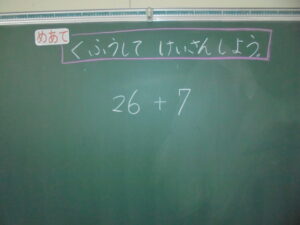 めあて
くふうして けいさんしよう。
26+7